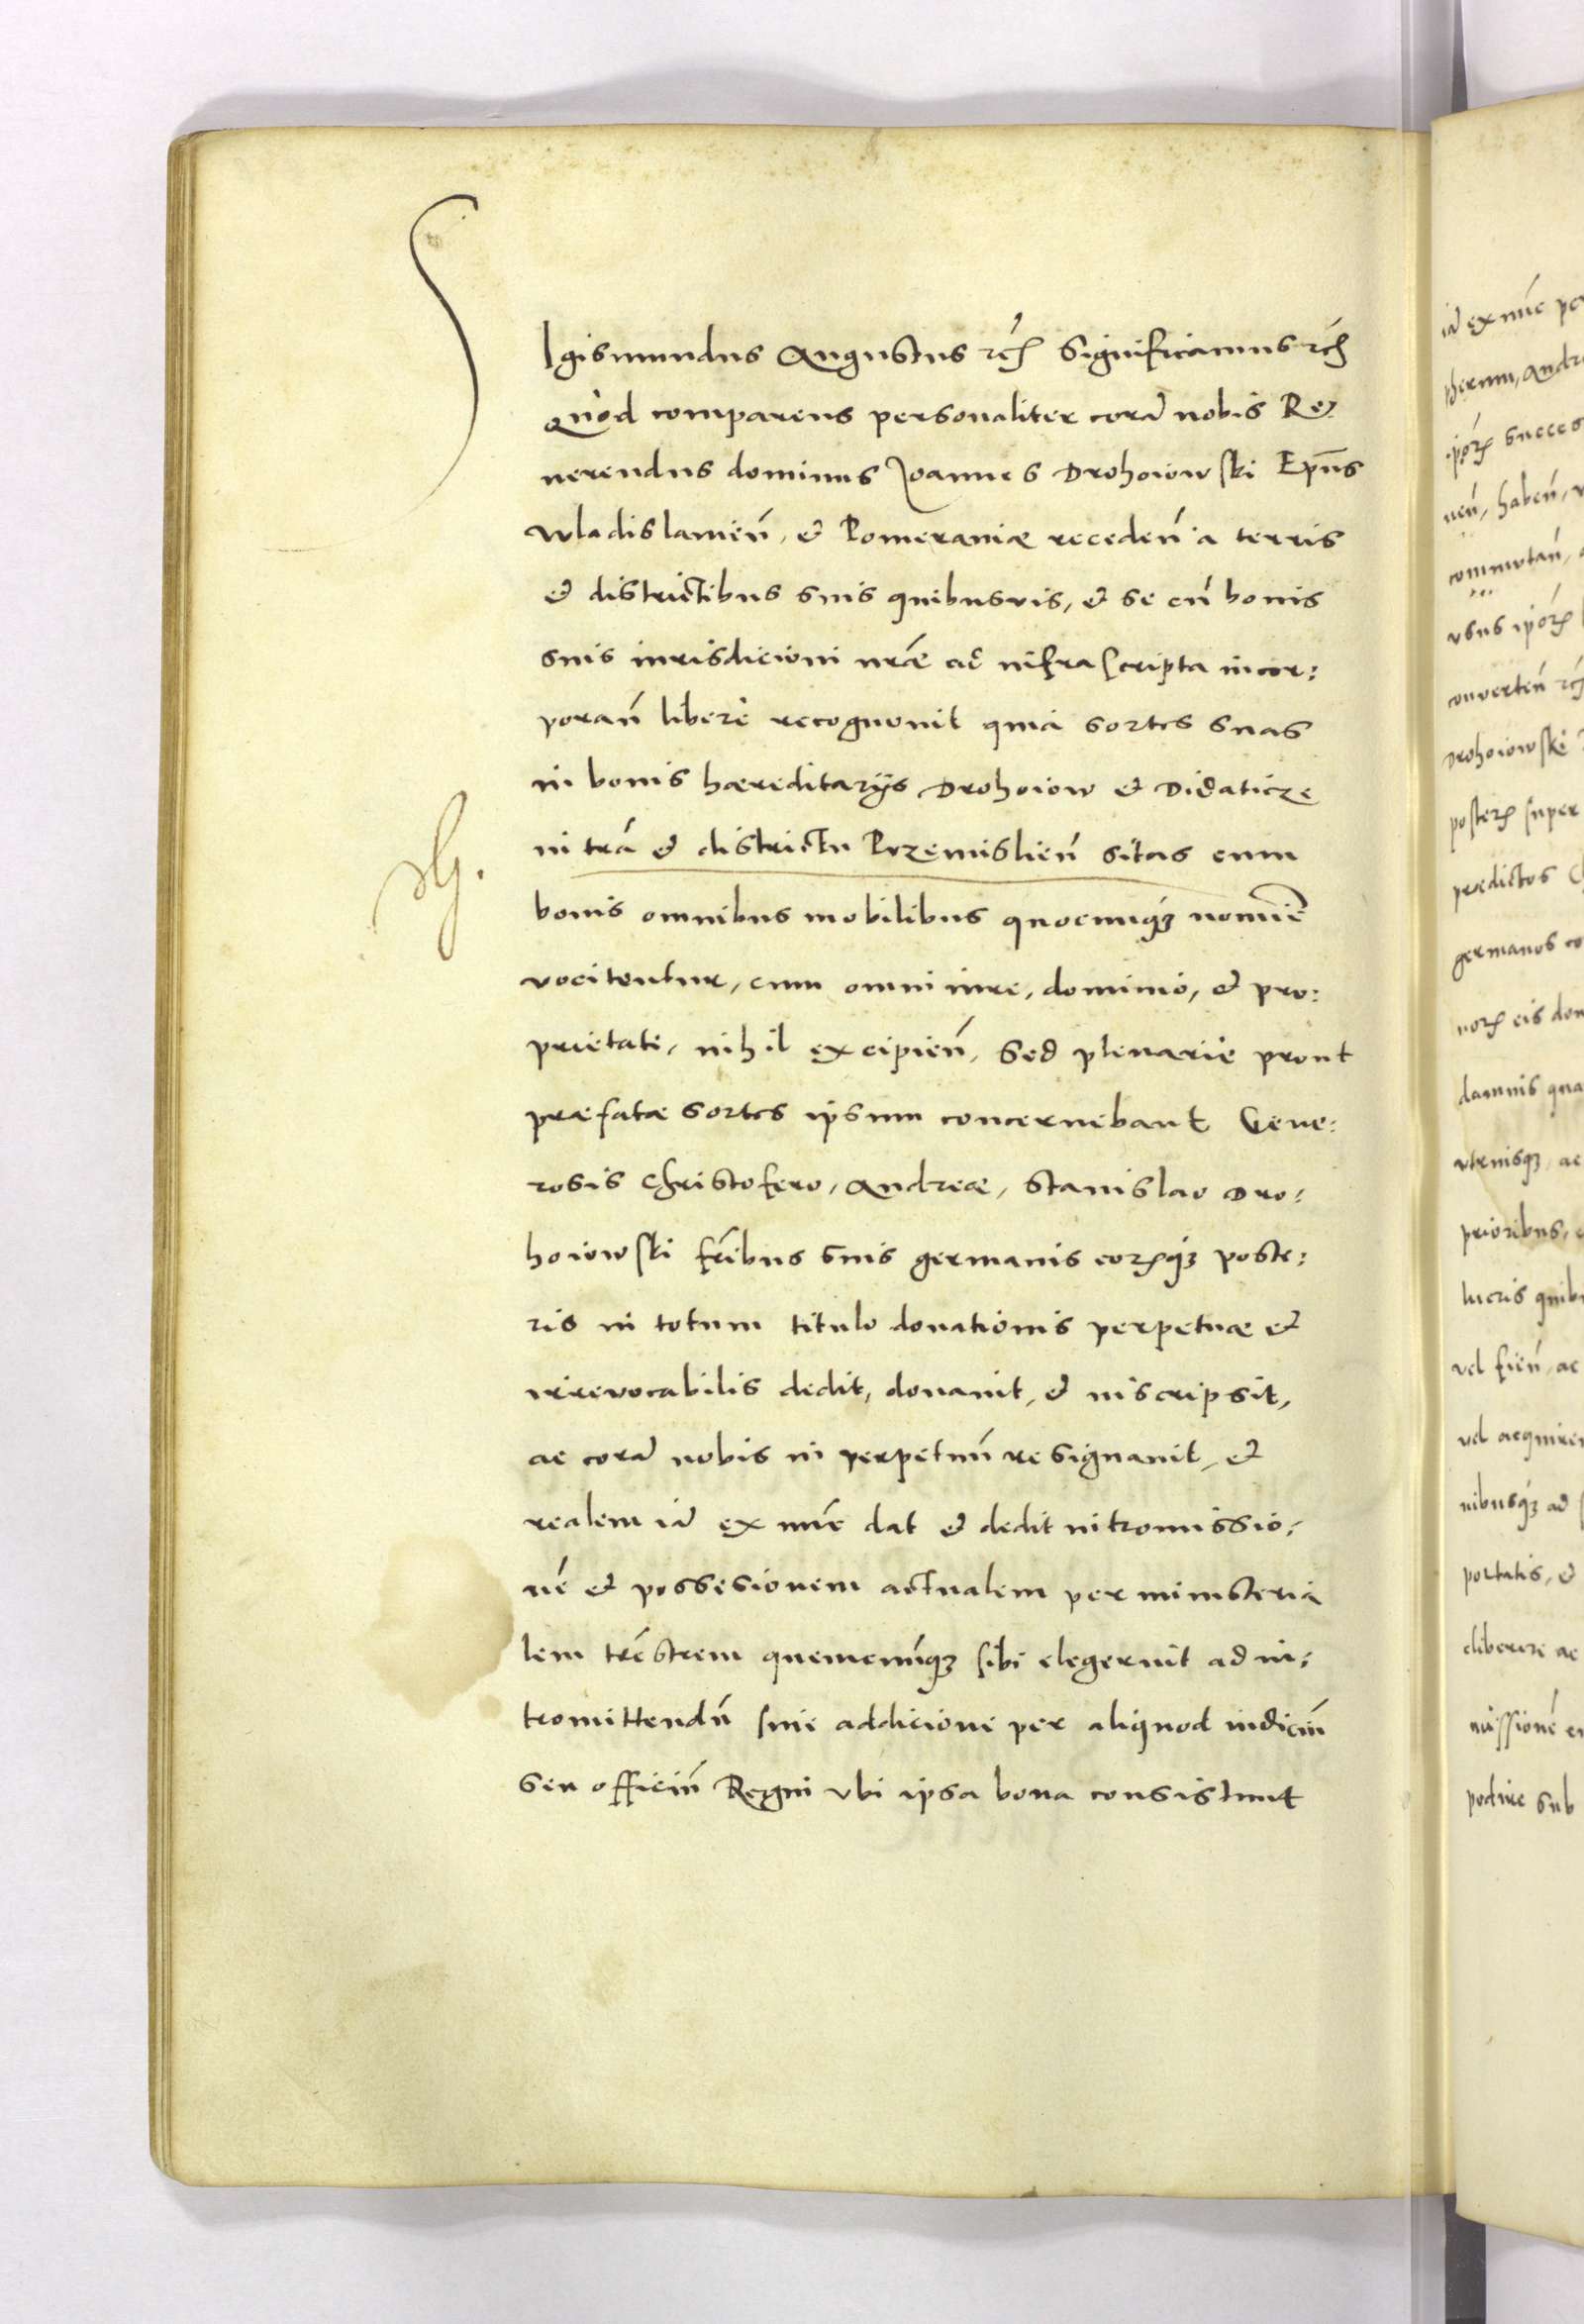 SIgismundus Augustus rc̃ Significamus rc̃
Quod comparens personaliter corã nobis Re-
uerendus dominus Joannes Drohoiowski Epũs
Wladislauień, et Pomeraniæ receden̄ à terris
et districtibus suis quibusvis, et se cũ bonis
suis iurisdicioni nrãe ad infrascripta incor:
poran̄ liberè recognouit quia sortes suas
in bonis hæreditarijs Drohoiow et Didaticze
in trã et districtu Przemislień sitas cum
bonis omnibus mobilibus quocunq́ꝫ nomiē
vocitentur, cum omni iure, dominio, et pro:
prietate, nihil excipień, sed plenariè prout
præfatæ sortes ipsum concernebant Gene:
rosis Christofero, Andreæ, Stanislao Dro:
hoiowski frĩbus suis germanis eorꝝq́ꝫ poste:
ris in totum titulo donationis perpetuæ et
irreuocabilis dedit, donauit, et inscripsit,
ac corã nobis in perpetuũ resignauit, et
realem iã ex nũc dat et dedit intromissio:
nẽ et possesionem actualem per ministeria
lem trẽstrem quemcunq́ꝫ sibi elegerint ad in:
tromittendũ sine addicione per aliquod iudiciũ
seu officiũ Regni vbi ipsa bona consistunt
iã ex nũc
pherum, Andr
ipõrꝝ succes
uen̄, haben̄,
commutan̄,
vsus ipõrꝝ
conuerten̄ rc̃
Drohoiowski
posterꝝ super
predictos
germanos co
norꝝ eis don
damnis qua
vtrnisqꝫ, ac
prioribus,
lucris quib
vel fien̄, ac
vel acquire
nibusqꝫ ad
portatis, et
eliberare ac
missionẽ
podire sub